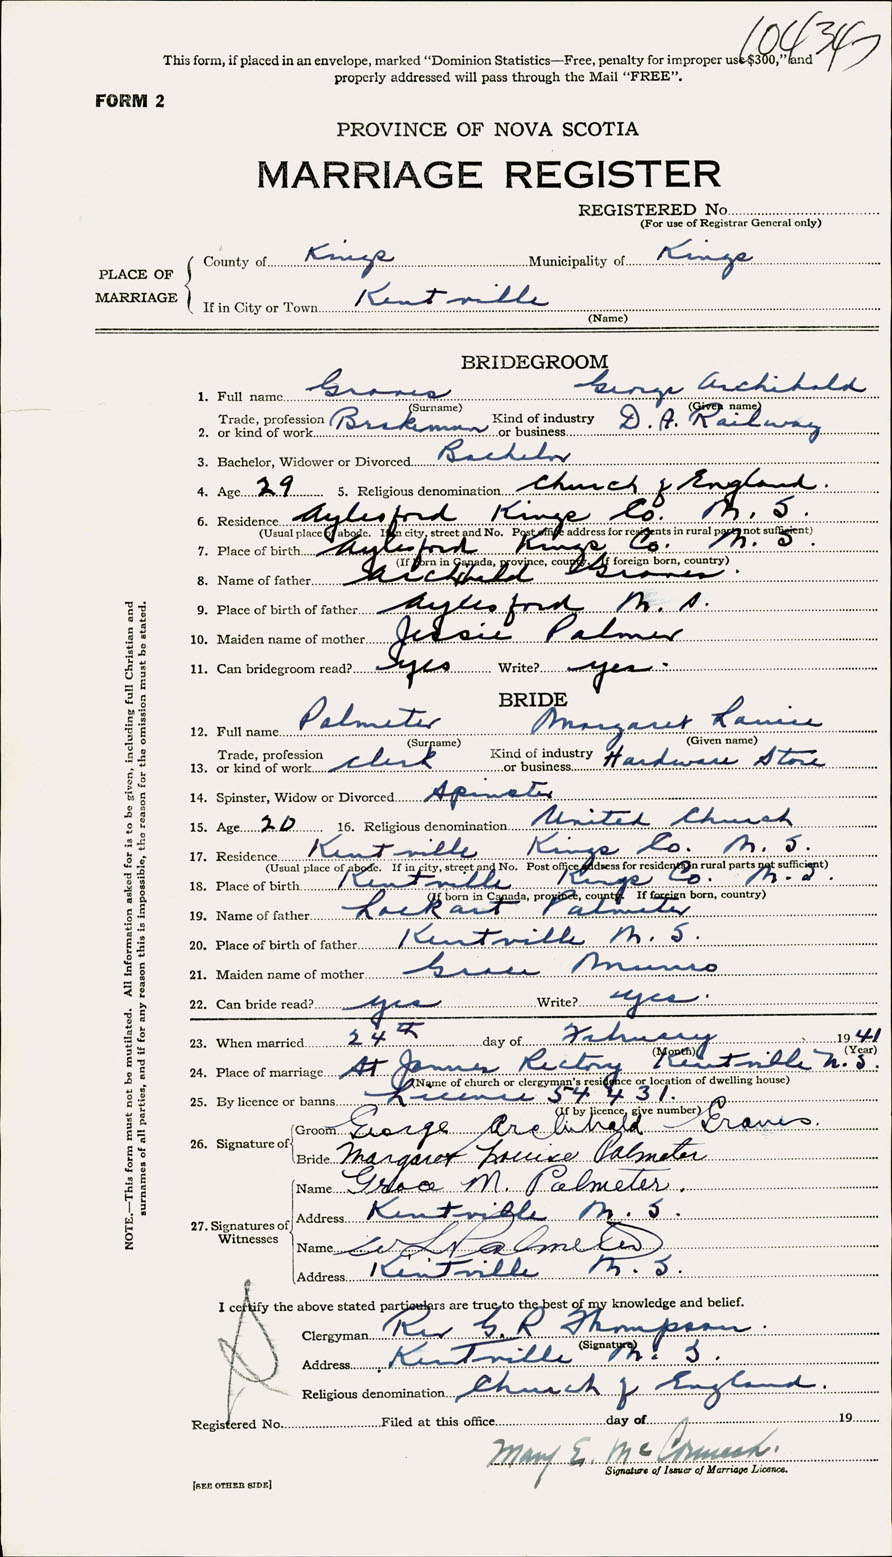 104347
This form, if placed in an envelope, marked “Dominion Statistics—Free, penalty for improper use $300,” and
properly addressed will pass through the Mail “FREE”.
FORM 2
PROVINCE OF NOVA SCOTIA
MARRIAGE REGISTER
REGISTERED No.
(For use of Registrar General only)
PLACE OF MARRIAGE
County of Kings Municipality of Kings
If in City or Town Kentville
(Name)
BRIDEGROOM
1. Full name Graves George Archibald
(Surname) (Given name)
2. Trade, profession or kind of work Brakeman Kind of industry or business D.A. Railway
3. Bachelor, Widower or Divorced Bachelor
4. Age 29 5. Religious denomination Church of England.
6. Residence Aylesford Kings Co. N. S.
(Usual place of abode. If in city, street and No. Post office address for residents in rural parts not sufficient)
7. Place of birth Aylesford Kings Co. N. S.
(If born in Canada, province, county. If foreign born, country)
8. Name of father Archibald Graves.
9. Place of birth of father Aylesford N. S.
10. Maiden name of mother Jessie Palmer
11. Can bridegroom read? yes Write? yes.
BRIDE
12. Full name Palmeter Margaret Louise
(Surname) (Given name)
13. Trade, profession or kind of work Clerk Kind of industry or business Hardware Store
14. Spinster, Widow or Divorced Spinster
15. Age 20 16. Religious denomination United Church
17. Residence Kentville Kings Co. N. S.
(Usual place of abode. If in city, street and No. Post office address for residents in rural parts not sufficient)
18. Place of birth Kentville Kings Co. N. S.
(If born in Canada, province, county. If foreign born, country)
19. Name of father Lockart Palmeter
20. Place of birth of father Kentville N. S.
21. Maiden name of mother Grace Munro
22. Can bride read? yes Write? yes.
23. When married 24th day of February 1941
(Month) (Year)
24. Place of marriage St James Rectory Kentville N. S.
(Name of church or clergyman's residence or location of dwelling house)
25. By licence or banns Licence 54431.
(If by licence, give number)
26. Signature of
Groom George Archibald Graves.
Bride Margaret Louise Palmeter
27. Signatures of Witnesses
Name Grace M. Palmeter.
Address Kentville N. S.
Name W L Palmeter
Address Kentville N. S.
I certify the above stated particulars are true to the best of my knowledge and belief.
Clergyman Rev G. R Thompson.
(Signature)
Address Kentville N. S.
Religious denomination Church of England.
Registered No. Filed at this office day of 19
Mary E. McCormack.
Signature of Issuer of Marriage Licence.
[SEE OTHER SIDE]
NOTE.—This form must not be mutilated. All Information asked for is to be given, including full Christian and
surnames of all parties, and if for any reason this is impossible, the reason for the omission must be stated.